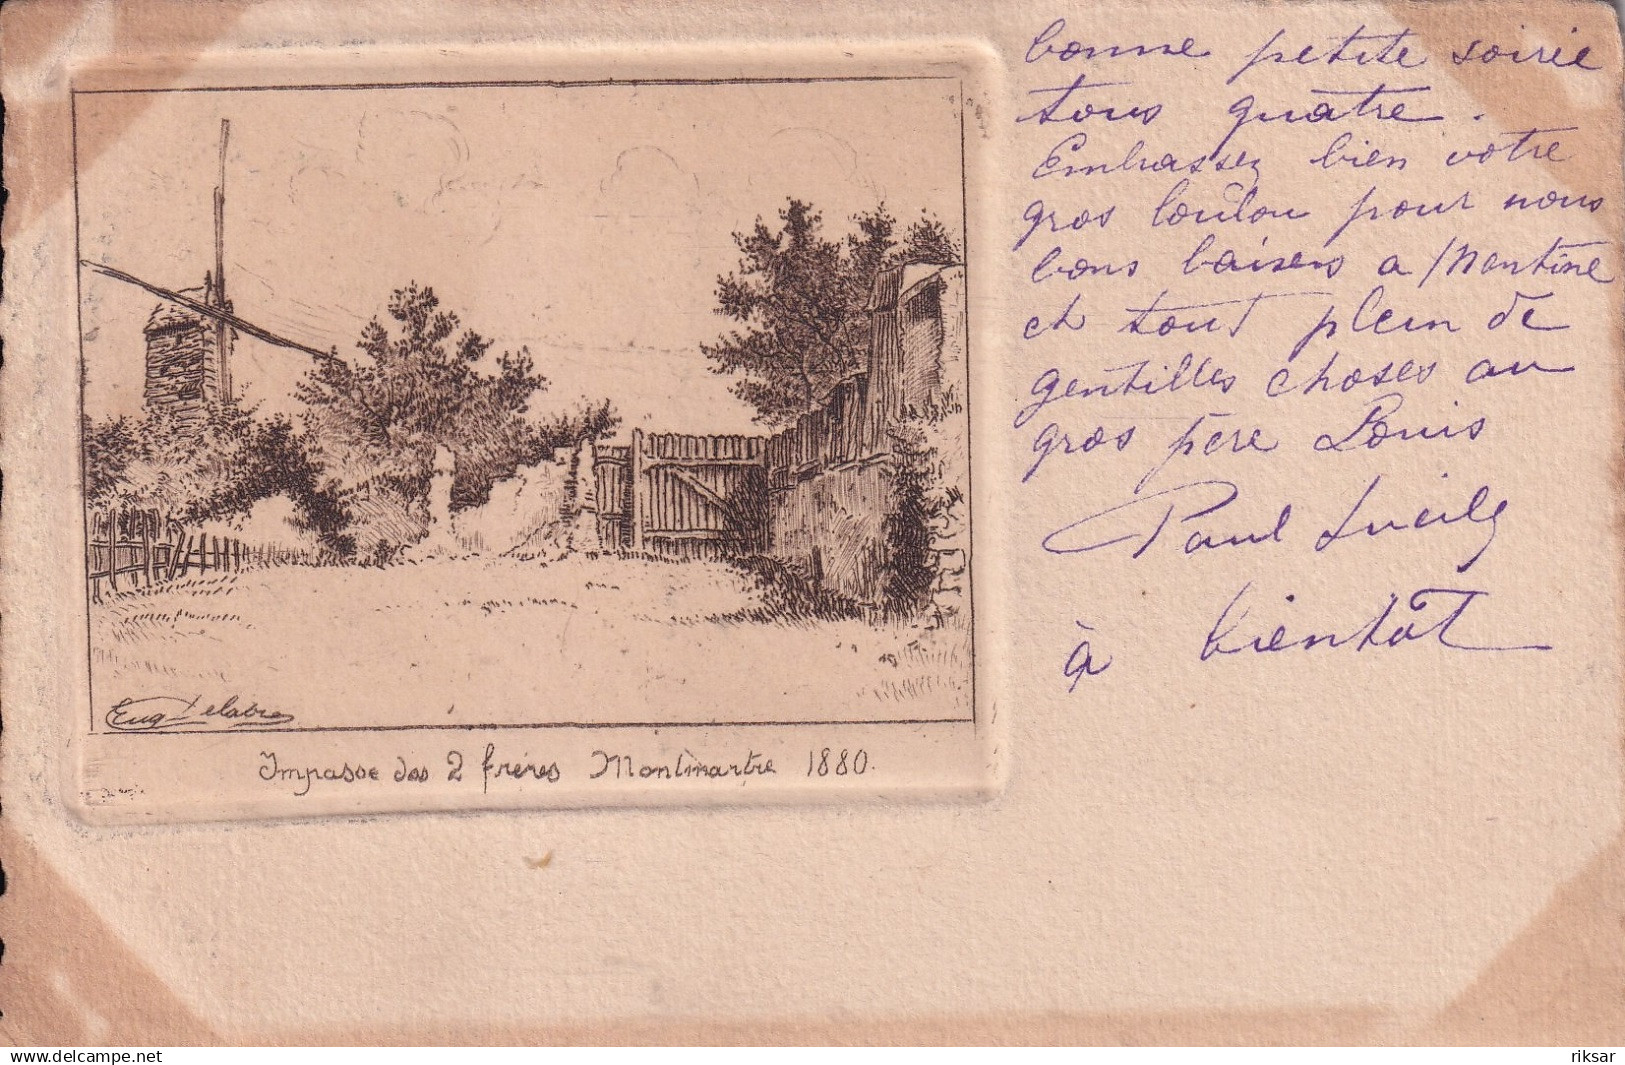 bonne petite soirée
tous quatre.
Embrassez bien votre
gros loulou pour nous
bons baisers a
et tout plein de
gentilles choses au
gros père Louis
Paul
à bientôt
Eug Delatre
Impasse des 2 frères Montmartre 1880.
delcampe.net
riksar